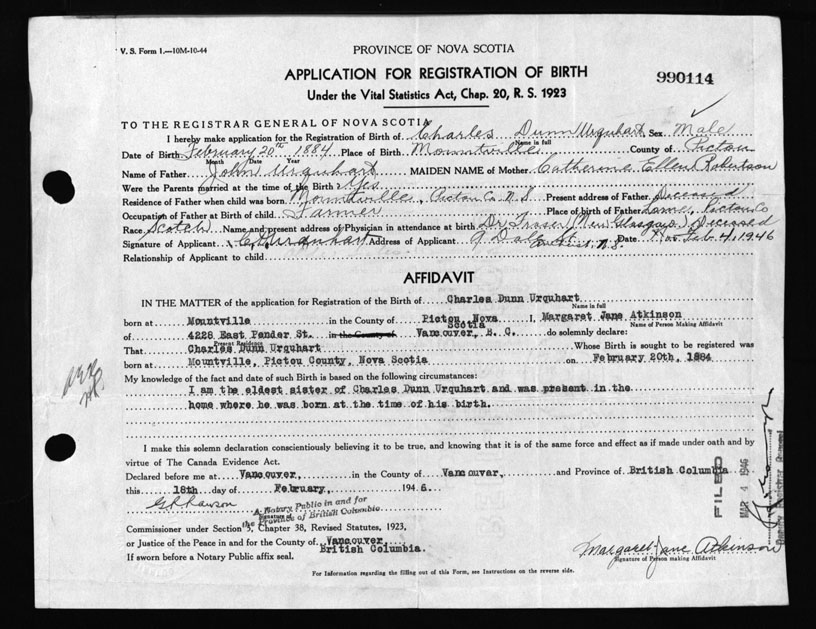 V. S. Form 1.—10M-10-44
PROVINCE OF NOVA SCOTIA
APPLICATION FOR REGISTRATION OF BIRTH
990114
Under the Vital Statistics Act, Chap. 20, R. S. 1923
TO THE REGISTRAR GENERAL OF NOVA SCOTIA
I hereby make application for the Registration of Birth of Charles Dunn Urquhart Sex Male
Name in full
Date of Birth February 20th 1884 Place of Birth Mountville County of Pictou
Month Date Year
Name of Father John Urquhart MAIDEN NAME of Mother Catherine Ellen Robertson
Were the Parents married at the time of the Birth? Yes
Residence of Father when child was born Mountville, Pictou Co. N.S. Present address of Father Deceased
Occupation of Father at Birth of child Farmer Place of birth of Father Pictou Co
Race Scotch Name and present address of Physician in attendance at birth Dr. Fraser (New Glasgow) Deceased
Signature of Applicant Address of Applicant N.S. Date Feb 4, 1946
Relationship of Applicant to child
AFFIDAVIT
IN THE MATTER of the application for Registration of the Birth of Charles Dunn Urquhart
Name in full
born at Mountville in the County of Pictou, Nova Scotia I, Margaret Jane Atkinson
Name of Person Making Affidavit
of 4228 East Pender St. in the County of Vancouver, B. C. do solemnly declare:
Present Residence
That Charles Dunn Urquhart Whose Birth is sought to be registered was
born at Mountville, Pictou County, Nova Scotia on February 20th, 1884
My knowledge of the fact and date of such Birth is based on the following circumstances:
I am the eldest sister of Charles Dunn Urquhart and was present in the
home where he was born at the time of his birth.
I make this solemn declaration conscientiously believing it to be true, and knowing that it is of the same force and effect as if made under oath and by
virtue of The Canada Evidence Act.
Declared before me at Vancouver, in the County of Vancouver, and Province of British Columbia
this 18th day of February, 1946.
A Notary Public in and for
Signature of
the Province of British Columbia
Commissioner under Section 5, Chapter 38, Revised Statutes, 1923,
or Justice of the Peace in and for the County of Vancouver, British Columbia.
If sworn before a Notary Public affix seal.
Margaret Jane Atkinson
Signature of Person making Affidavit
For Information regarding the filling out of this Form, see Instructions on the reverse side.
FILED
MAR 4 1946
Deputy Registrar General